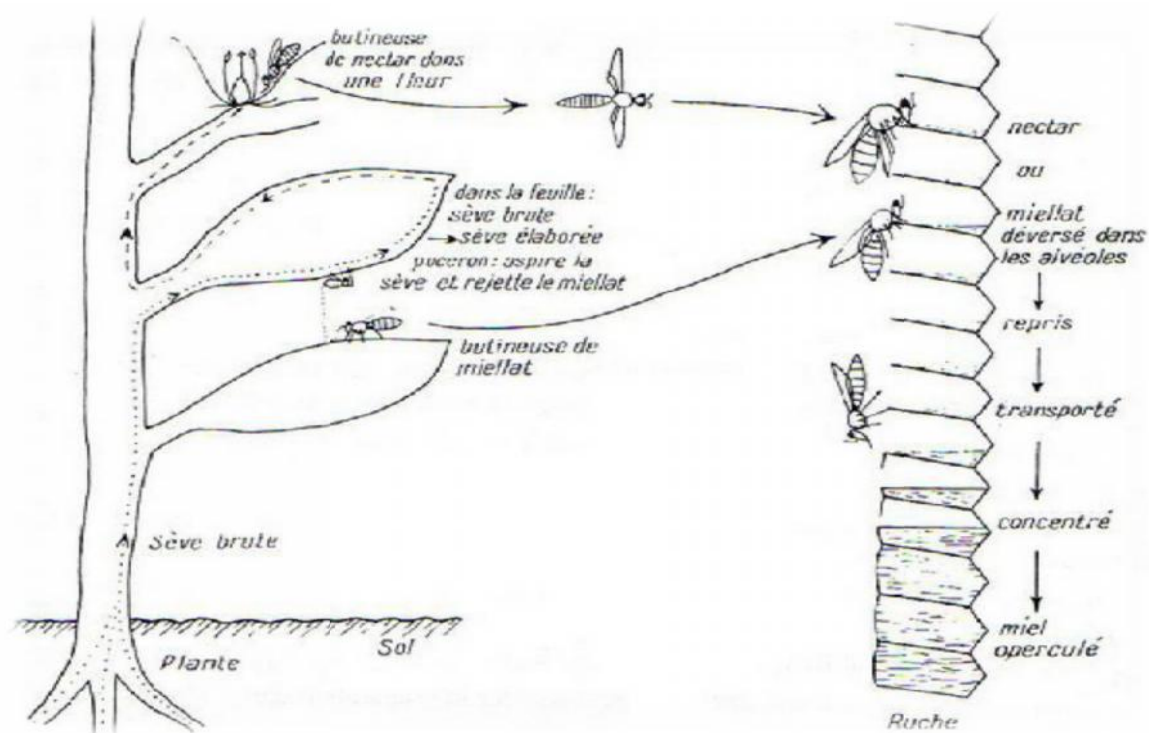 butineuse
de nectar dans
une fleur
dans la feuille :
sève brute
sève élaborée
puceron : aspire la
sève et rejette le miellat
butineuse de
miellat
Sève brute
Sol
Plante
nectar
ou
miellat
déversé dans
les alvéoles
repris
transporté
concentré
miel
operculé
Ruche